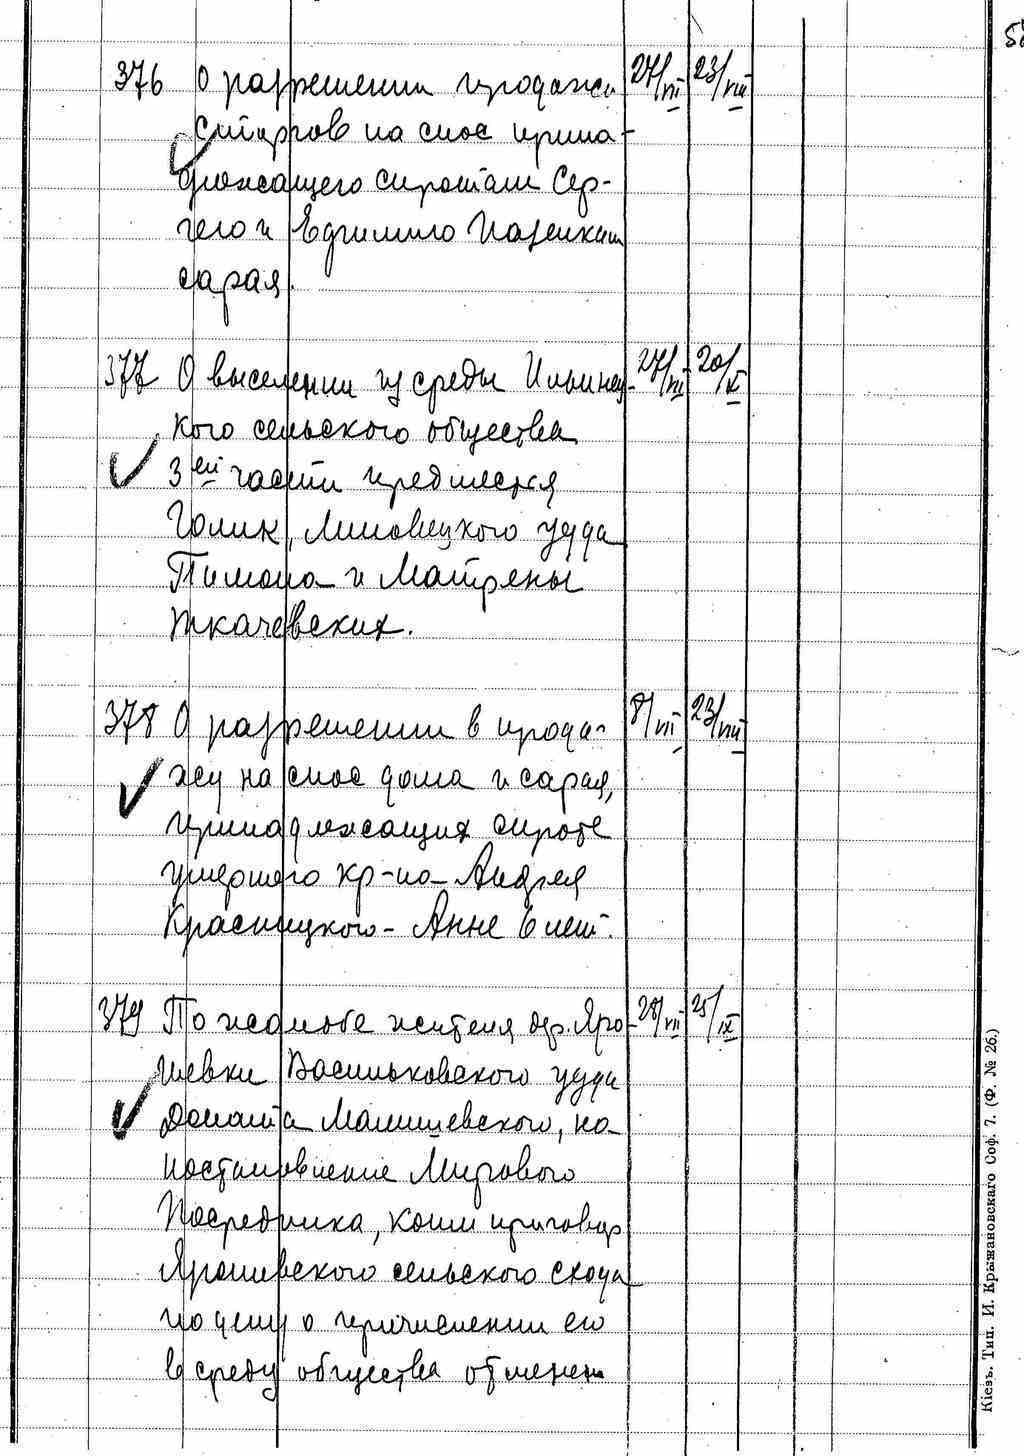 376 О разрешении продажи 27/VII 23/VIII
с торгов на снос прина-
длежащего сиротам Сер-
гею и
сарая.
377 О выселении из среды Ильинец- 27/VII 20/X
кого сельского общества
3ей части предместья
Голик, Липовецкого уезда
Пимона и Матрены
Ткачевских.
378 О разрешении в прода- 8/VII 23/VIII
жу на снос дома и сарая,
принадлежащих сироте
умершего кр-на Андрея
Красницкого - Анне 6 лет.
379 По жалобе жителя дер. Яро- 28/VII 25/IX
шевки Васильковского уезда
Доната Малишевского, на
постановление Мирового
Посредника, коим приговор
Ярошевского сельского схода
по делу о причислении его
в среду общества отменен
Кіевъ. Тип. И. Крыжановскаго Соф. 7. (Ф. № 26.)